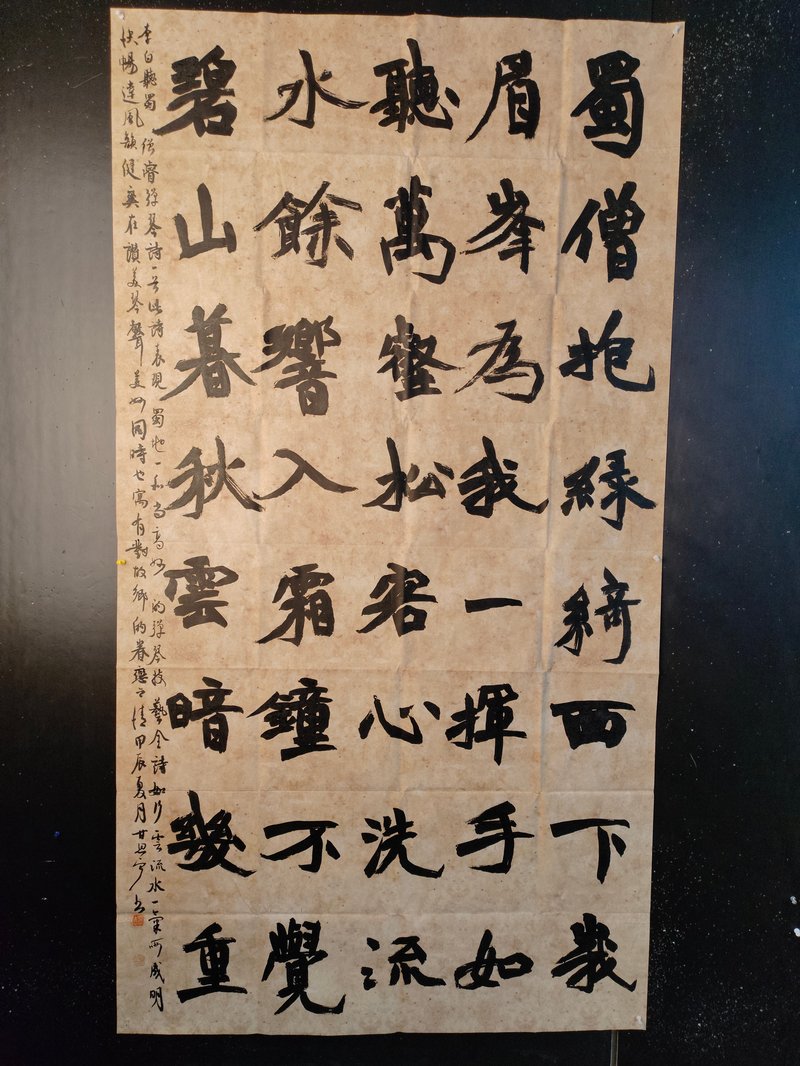 蜀僧抱緑綺西下峩
眉峰為我一揮手如
聽萬壑松客心洗流
水餘響入霜鐘不覺
碧山暮秋雲暗幾重
李白聽蜀僧睿彈琴詩一首此詩表現蜀地一和尚高妙的彈琴技藝全詩如行雲流水一氣呵成明
快暢達風韻健爽在讚美琴聲美妙同時也寓有對故鄉的眷戀之情甲辰夏月甘思寧书